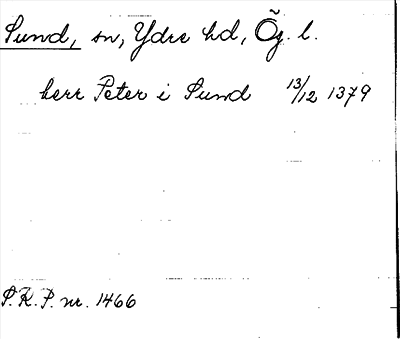 Sund, sn, Ydre hd, Ög. l.
herr Peter i Sund 13/12 1379
S.R.P. nr. 1466